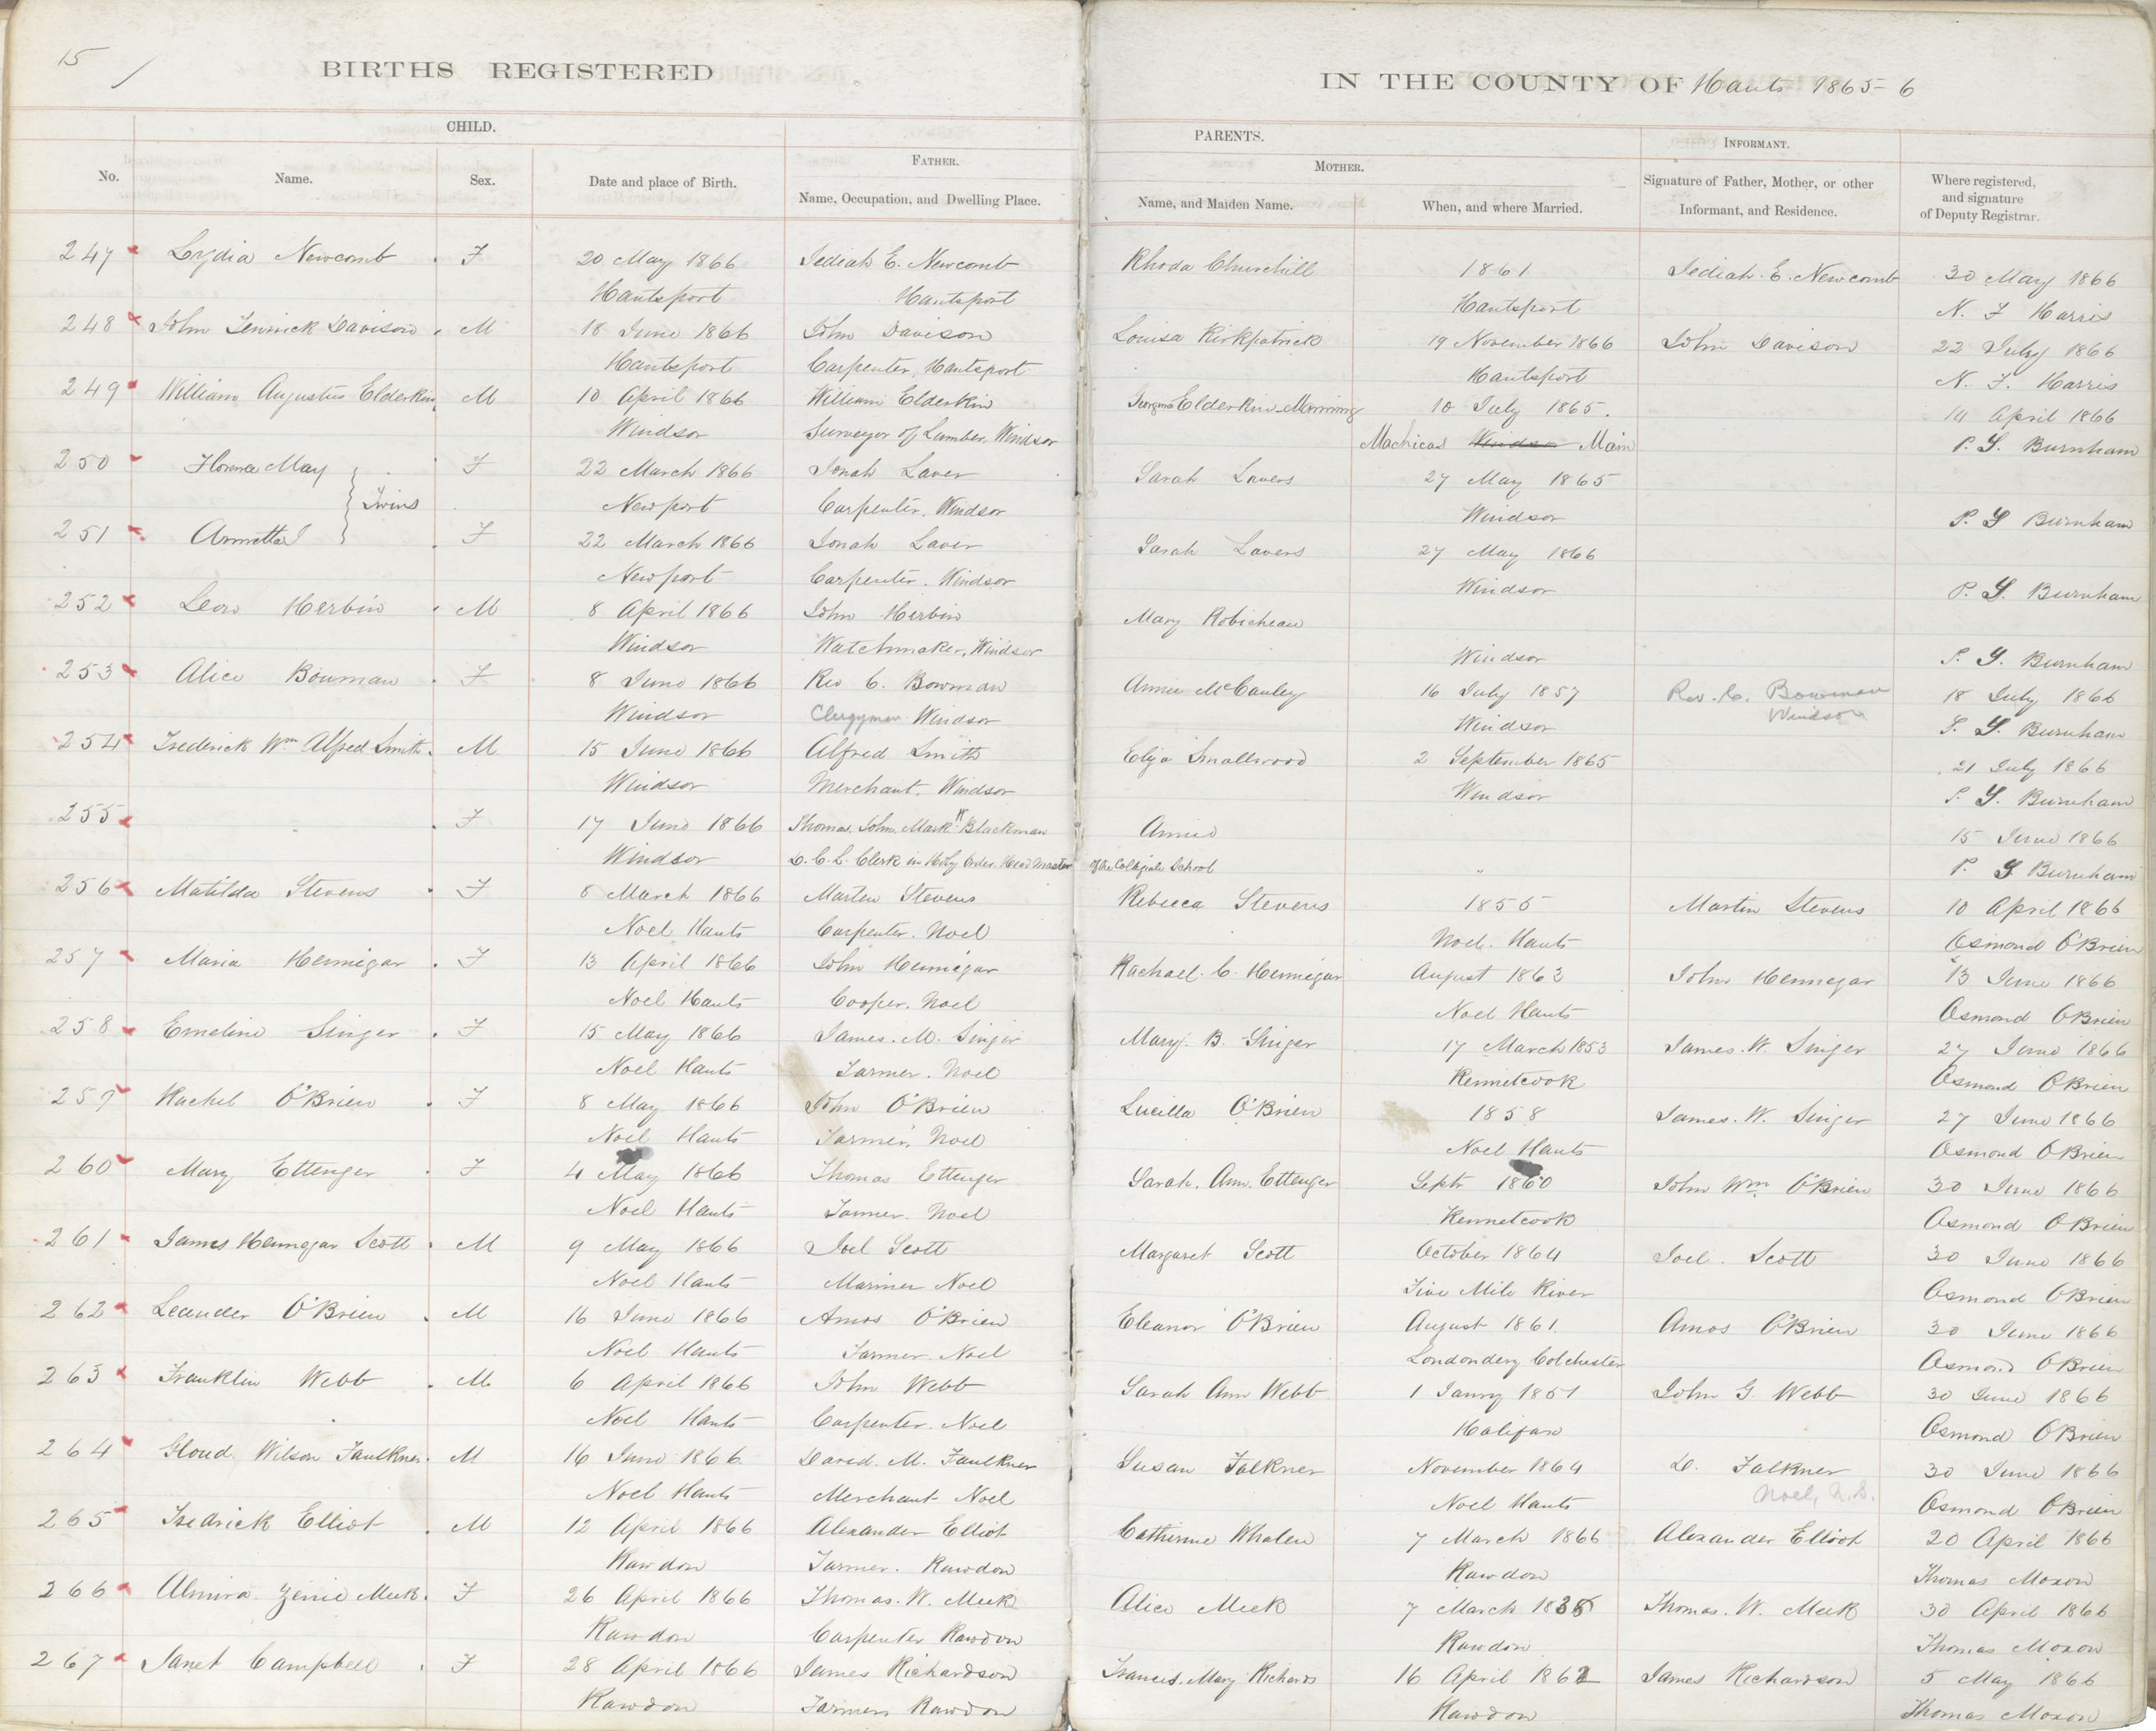 15
BIRTHS REGISTERED IN THE COUNTY OF Hants 1865-6
CHILD. PARENTS.
FATHER. MOTHER. INFORMANT.
No. Name. Sex. Date and place of Birth. Name, Occupation, and Dwelling Place. Name, and Maiden Name. When, and where Married. Signature of Father, Mother, or other Informant, and Residence. Where registered, and signature of Deputy Registrar.
247 Lydia Newcomb F 20 May 1866 Jediah E. Newcomb Rhoda Churchill 1861 Jediah E. Newcomb 30 May 1866
Hantsport Hantsport Hantsport N. F Harris
248 John Fenwick Davison M 18 June 1866 John Davison Louisa Kirkpatrick 19 November 1866 John Davison 22 July 1866
Hantsport Carpenter, Hantsport Hantsport N. F. Harris
249 William Augustus Elderkin M 10 April 1866 William Elderkin Georgina Elderkin Manning 10 July 1865. 14 April 1866
Windsor Surveyor of Lumber, Windsor Machicas Windsor Main P. S. Burnham
250 Florence May F 22 March 1866 Jonah Laver Sarah Lavers 27 May 1865
Twins Newport Carpenter, Windsor Windsor P. S Burnham
251 Annetta F 22 March 1866 Jonah Laver Sarah Lavers 27 May 1866
Newport Carpenter. Windsor Windsor P. S. Burnham
252 Leon Herbin M 8 April 1866 John Herbin Mary Robicheau
Windsor Watchmaker, Windsor Windsor P. S. Burnham
253 Alice Bowman F 8 June 1866 Rev C. Bowman Annie McCauley 16 July 1857 Rev. C. Bowman 18 July 1866
Windsor Clergyman Windsor Windsor Windsor P. S. Burnham
254 Frederick Wm Alfred Smith M 15 June 1866 Alfred Smith Eliza Smallwood 2 September 1865 21 July 1866
Windsor Merchant. Windsor Windsor P. S. Burnham
255 F 17 June 1866 Thomas, John, Mark W. Blackman Annie 15 June 1866
Windsor D. C. L. Clerk in Holy Order. Head Master of the Collegiate School " P. S Burnham
256 Matilda Stevens F 8 March 1866 Marten Stevens Rebecca Stevens 1855 Martin Stevens 10 April 1866
Noel Hants Carpenter. Noel Noel. Hants Osmond O'Brien
257 Maria Hennigar F 13 April 1866 John Hennigar Rachael. C. Hennigar August 1863 John Hennegar 13 June 1866
Noel Hants Cooper. Noel Noel Hants Osmond O'Brien
258 Emeline Singer F 15 May 1866 James. M. Singer Mary. B. Singer 17 March 1853 James. W. Singer 27 June 1866
Noel Hants Farmer. Noel Kennetcook Osmond O'Brien
259 Rachel O'Brien F 8 May 1866 John O'Brien Lucilla O'Brien 1858 James. W. Singer 27 June 1866
Noel Hants Farmer, Noel Noel Hants Osmond O'Brien
260 Mary Ettenger F 4 May 1866 Thomas Ettenger Sarah. Ann. Ettenger Septr 1860 John Wm O'Brien 30 June 1866
Noel Hants Farmer. Noel Kennetcook Osmond O'Brien
261 James Hennegar Scott M 9 May 1866 Joel Scott Margaret Scott October 1864 Joel. Scott 30 June 1866
Noel Hants Mariner Noel Five Mile River Osmond O'Brien
262 Leander O'Brien M 16 June 1866 Amos O'Brien Eleanor O'Brien August 1861. Amos O'Brien 30 June 1866
Noel Hants Farmer. Noel Londondery Colchester Osmond O'Brien
263 Franklin Webb M 6 April 1866 John Webb Sarah Ann Webb 1 Janry 1851 John G. Webb 30 June 1866
Noel Hants Carpenter. Noel Halifax Osmond O'Brien
264 Gloud. Wilson Faulkner M 16 June 1866. David. M. Faulkner Susan Falkner November 1864 D. Falkner 30 June 1866
Noel Hants Merchant Noel Noel Hants Noel, N.S. Osmond O'Brien
265 Fredrick Elliot M 12 April 1866 Alexander Elliot Catherine Whalen 7 March 1866 Alexander Elliot 20 April 1866
Rawdon Farmer. Rawdon Rawdon Thomas Moxon
266 Almira Zenie Meek F 26 April 1866 Thomas. W. Meek Alice Meek 7 March 1835 Thomas. W. Meek 30 April 1866
Rawdon Carpenter Rawdon Rawdon Thomas Moxon
267 Janet Campbell F 28 April 1866 James Richardson Frances. Mary Richards 16 April 1862 James Richardson 5 May 1866
Rawdon Farmer Rawdon Rawdon Thomas Moxon